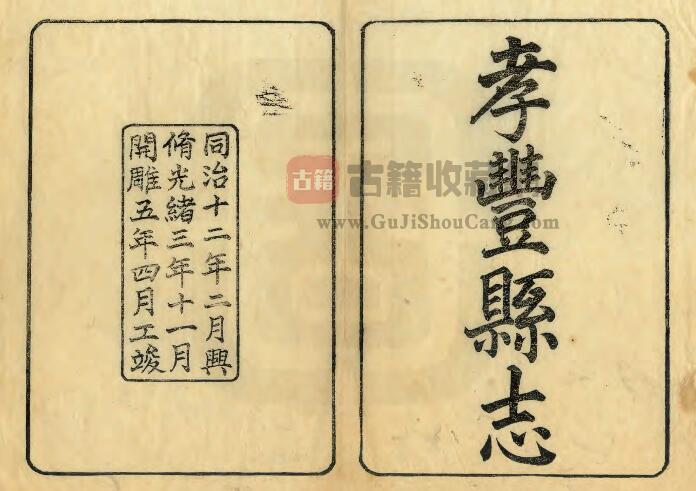 孝豐縣志
同治十二年二月興
脩光緒三年十一月
開雕五年四月工竣
古籍
古籍收藏
www.GuJiShouCang.com